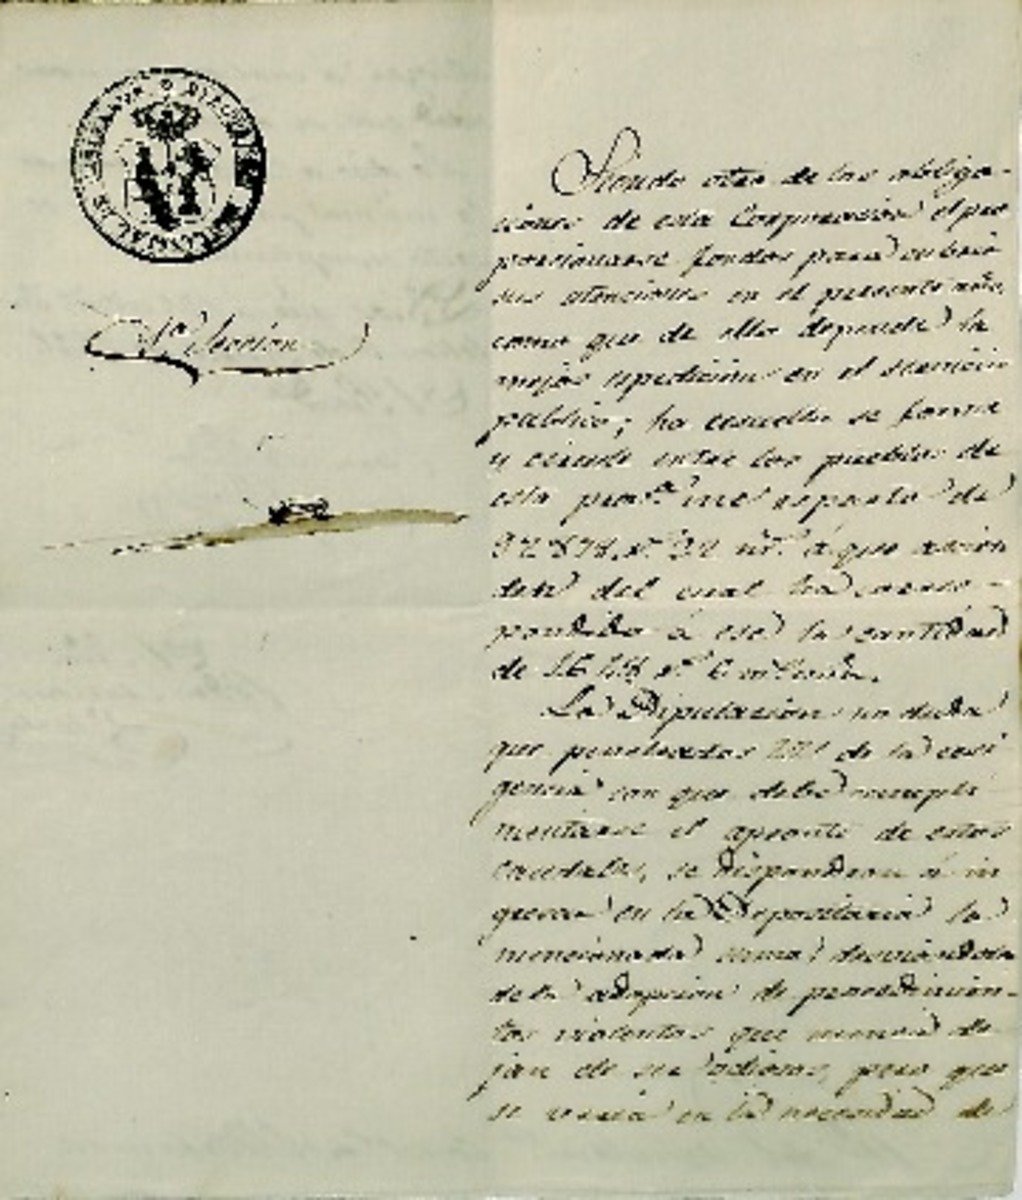 1ª Sección
Siendo otra de las obliga-
ciones de esta Corporacion el pro
porcionarse fondos para cubrir
sus atenciones en el presente año,
como que de ello depende la
mejor espedicion en el servicio
público; ha resuelto se forme
y circule entre los pueblos de
esta prov.ª un reparto de
á que ascien
den del cual ha corres-
pondido á ese la cantidad
de
La Diputacion no duda
que penetrados de la exi
gencia con que debe cumpli
mentarse el apronto de estos
caudales, se dispondran á in
gresar en la Depositaria la
mencionada suma
de la adopcion de procedimien-
tos violentos que nunca de
jan de ser odiosos, pero que
se veria en la necesidad de